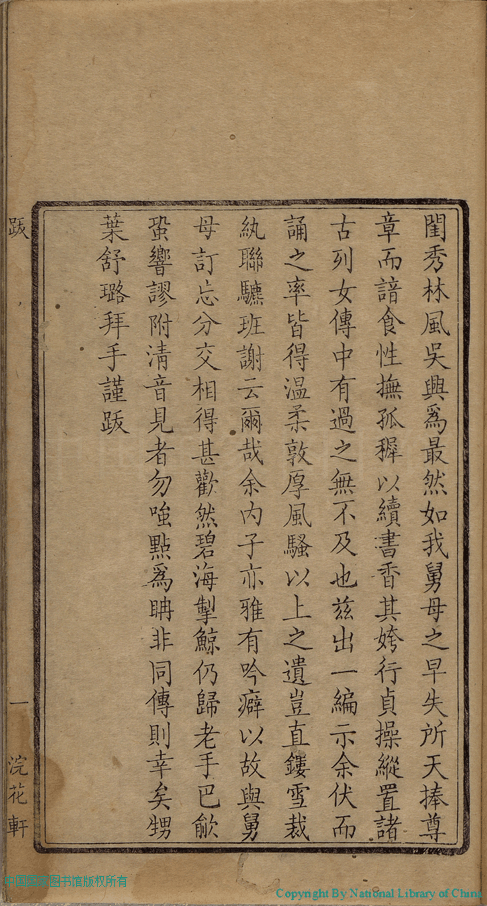 閨秀林風吳興為最然如我舅母之早失所天捧尊
章而諳食性撫孤穉以續書香其姱行貞操縱置諸
古列女傳中有過之無不及也茲出一編示余伏而
誦之率皆得溫柔敦厚風騷以上之遺豈直鏤雪裁
紈聯驪班謝云爾哉余內子亦雅有吟癖以故與舅
母訂忘分交相得甚歡然碧海掣鯨仍歸老手巴歈
蛩響謬附清音見者勿嗤點為聃非同傳則幸矣甥
葉舒璐拜手謹跋
跋
一
浣花軒
中国国家图书馆版权所有
Copyright By National Library of China